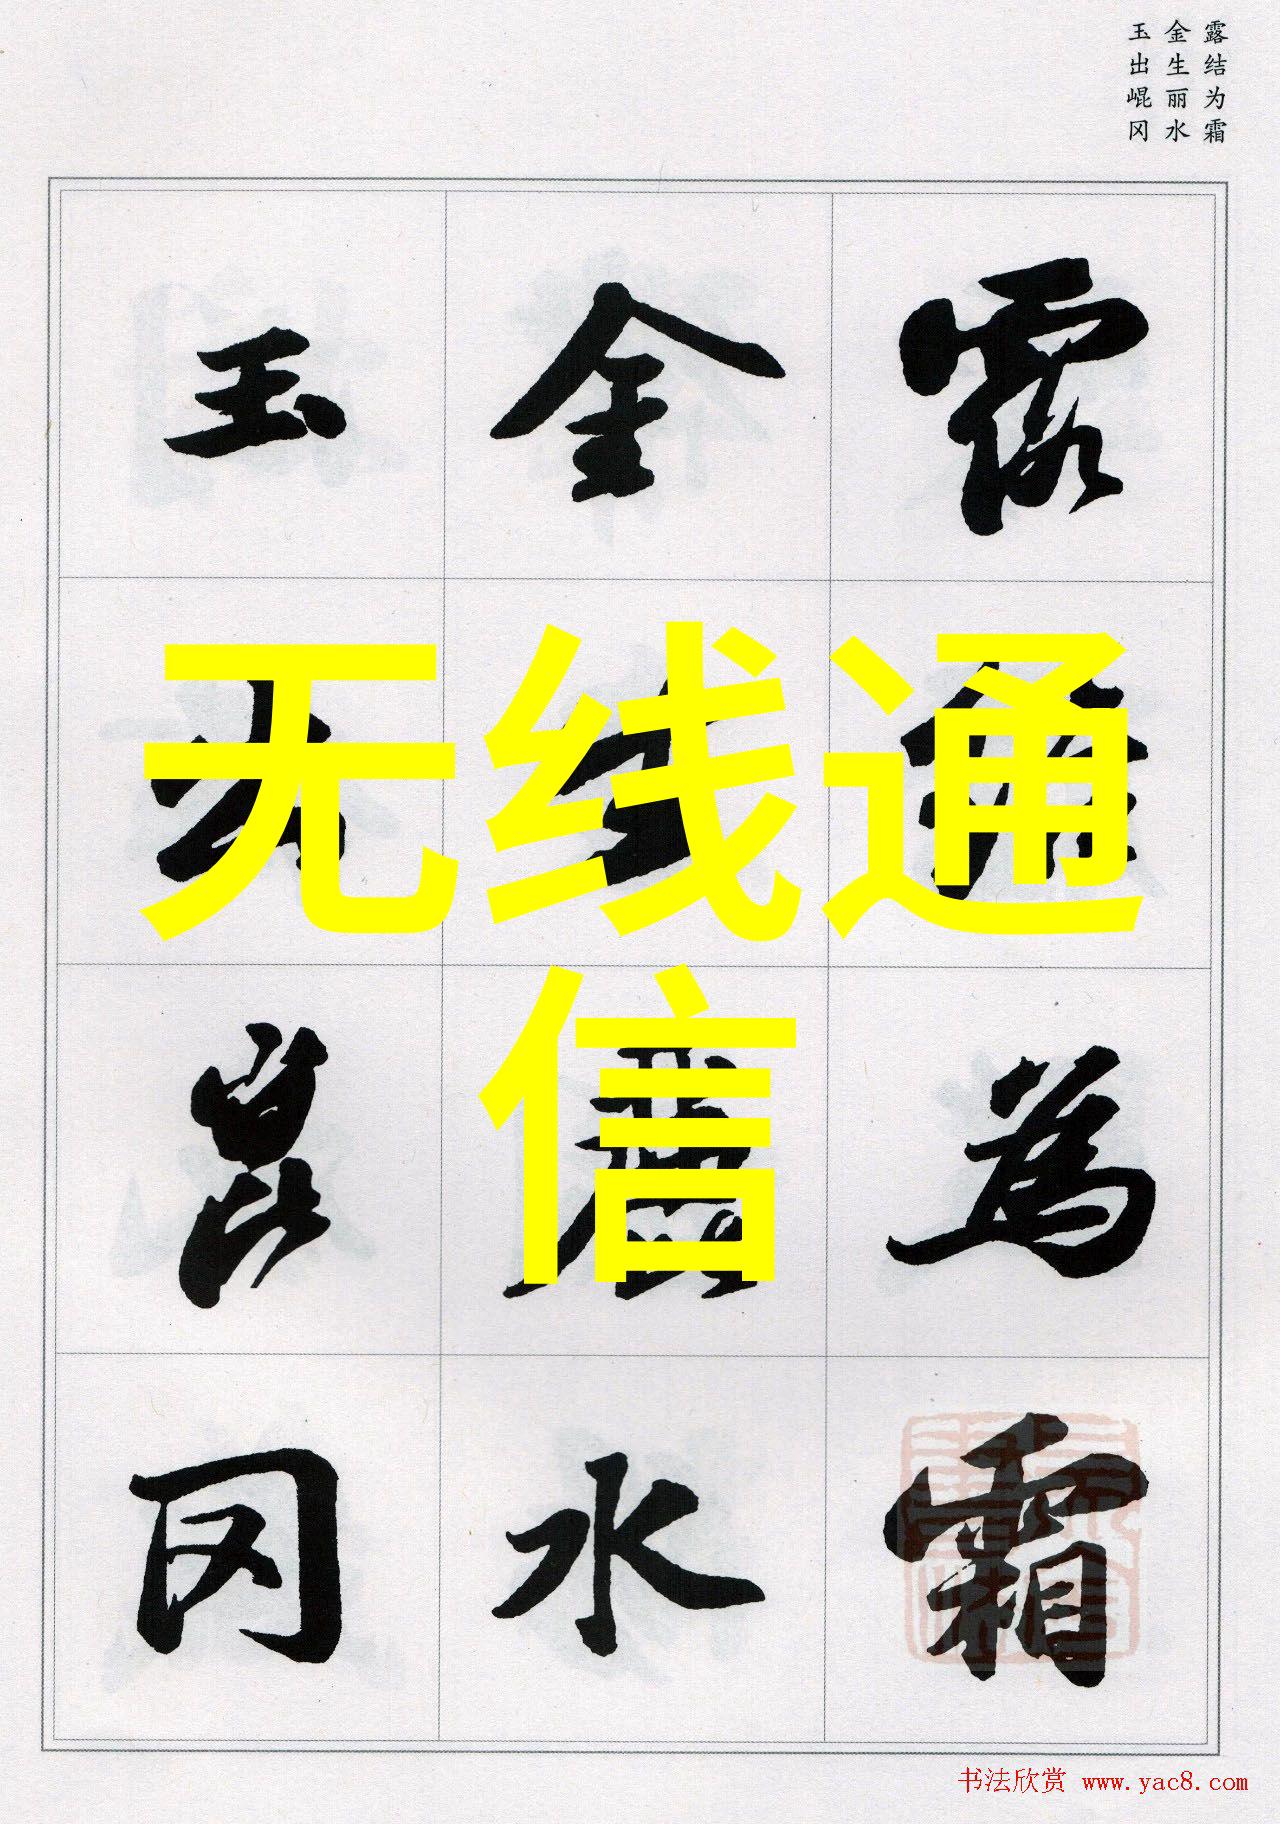 露结为霜
金生丽水
玉出崐冈
露结為霜
金生麗水
玉出崑冈
无线通
信
书法欣赏 www.yac8.com